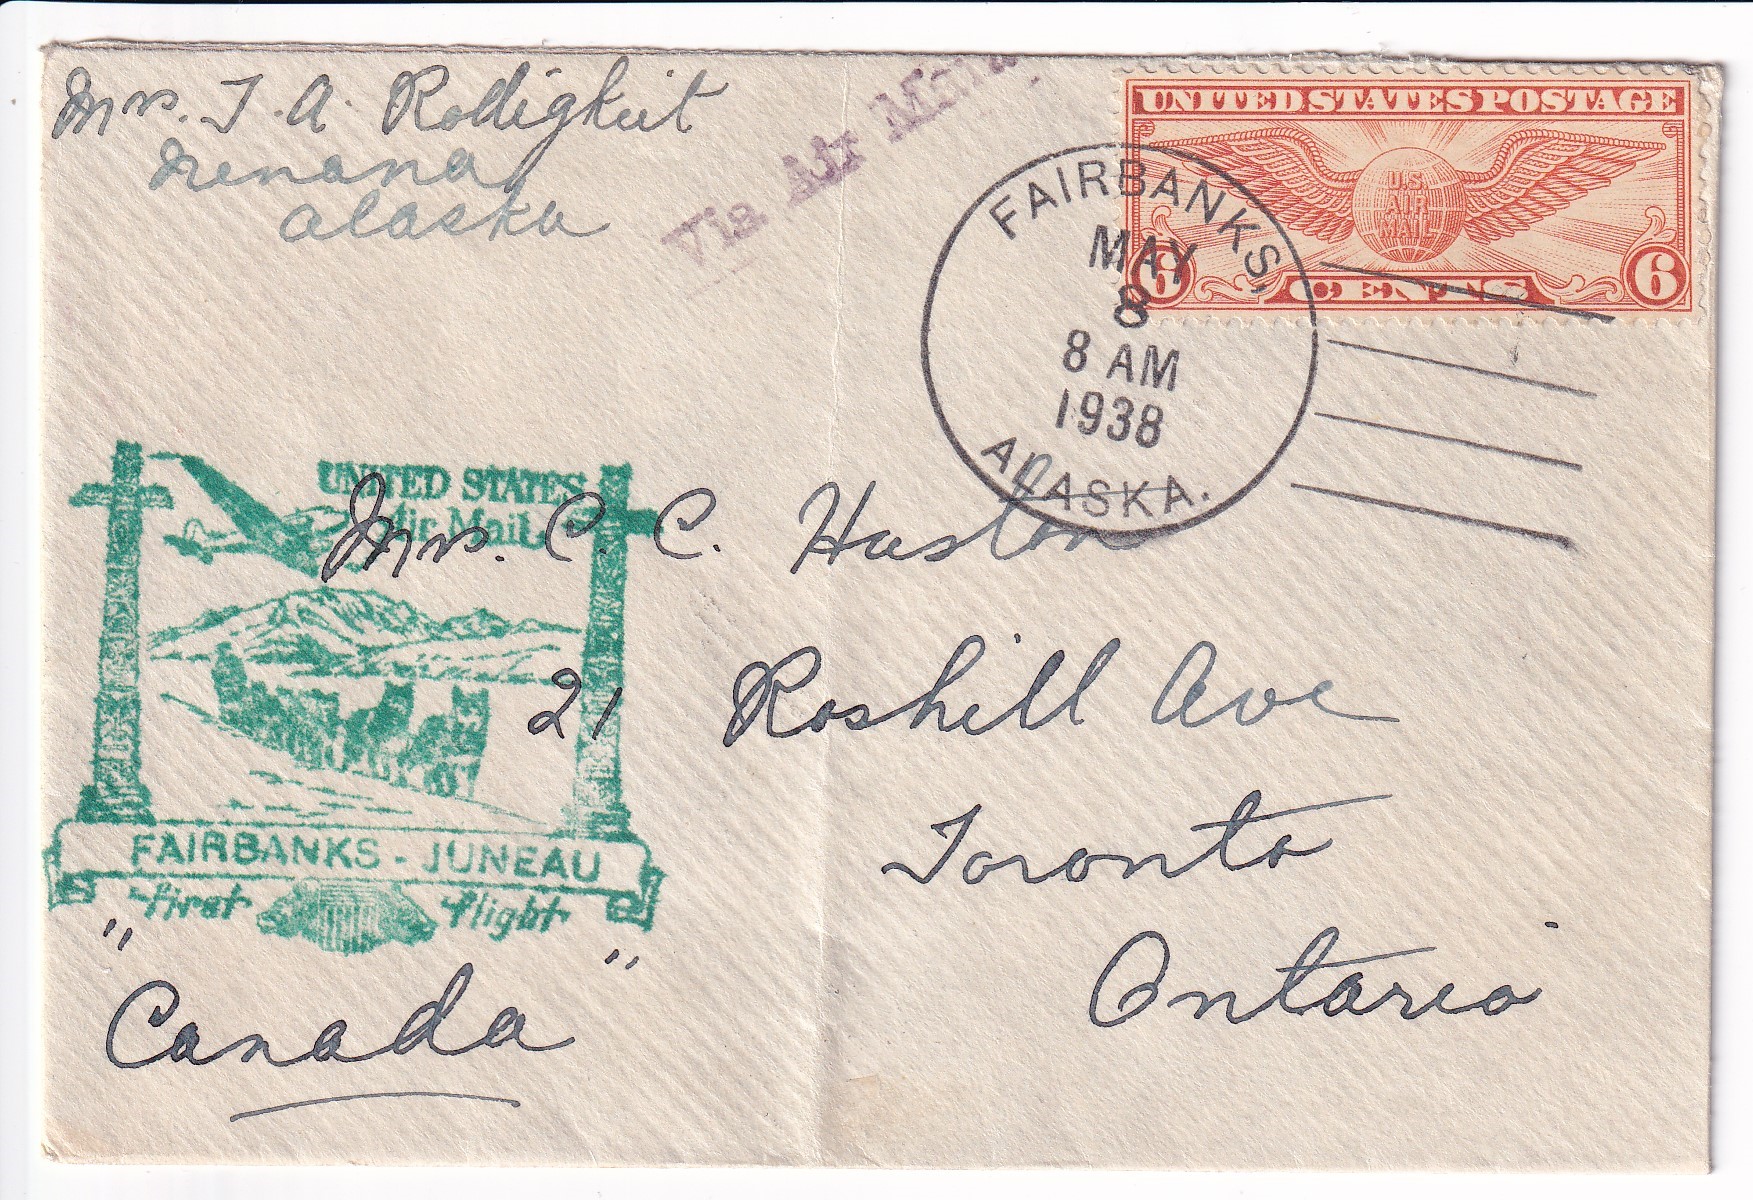 Mrs. T. A. Rodigkeit
Nenana
Alaska
Via Air Mail
UNITED STATES POSTAGE
U.S.
AIR
MAIL
6 CENTS 6
FAIRBANKS,
MAY
8
8 AM
1938
ALASKA.
UNITED STATES
Air Mail
Mrs. C. C. Huston
21 Roshill Ave
Toronto
Ontario
FAIRBANKS - JUNEAU
first flight
"Canada"